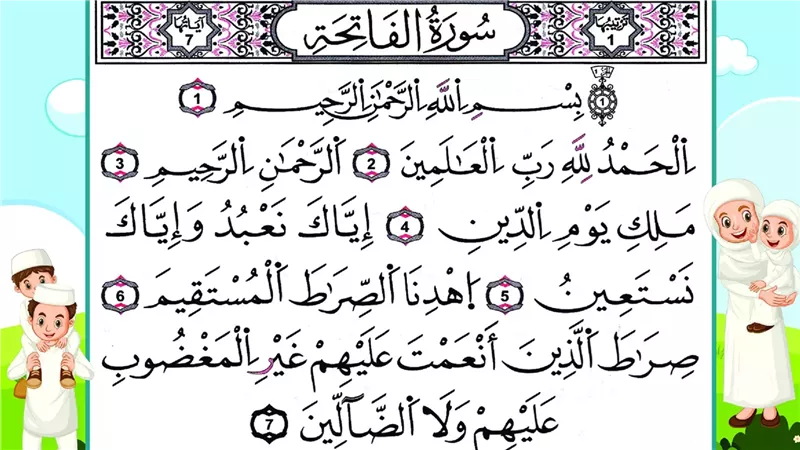 ترتيبها 1 سُورَةُ الفَاتِحَةِ آياتها 7
بِسْمِ اِ۬للَّهِ اِ۬لرَّحْمَٰنِ اِ۬لرَّحِيمِ 1
اِ۬لْحَمْدُ لِلَّهِ رَبِّ اِ۬لْعَٰلَمِينَ 2 اَ۬لرَّحْمَٰنِ اِ۬لرَّحِيمِ 3
مَلِكِ يَوْمِ اِ۬لدِّينِ 4 إِيَّاكَ نَعْبُدُ وَإِيَّاكَ
نَسْتَعِينُ 5 اِ۪هْدِنَا اَ۬لصِّرَٰطَ اَ۬لْمُسْتَقِيمَ 6
صِرَٰطَ اَ۬لَّذِينَ أَنْعَمْتَ عَلَيْهِمْ غَيْرِ اِ۬لْمَغْضُوبِ
عَلَيْهِمْ وَلَا اَ۬لضَّآلِّينَ 7